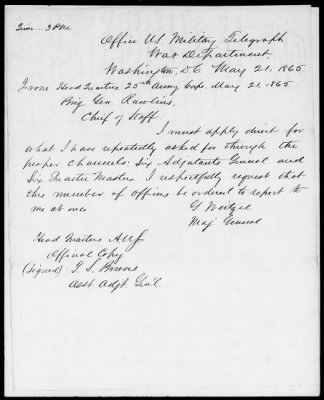 Time... 3 P.M.
Office US Military Telegraph
War Department.
Washington, D.C. May 21. 1865
From Head Quarters, 25th Army Corps. May 21. 1865
Brig Gen Rawlins.
Chief of Staff
I must apply direct for
what I have repeatedly asked for through the
proper Channels. Six Adjutants General and
Six Quarter Masters. I respectfully request that
this number of officers be ordered to report to
me at once
G Weitzel
Maj General
Head Quarters AUS
Official Copy
(Signed) T. S. Bowers
Asst Adgt. Gen'l